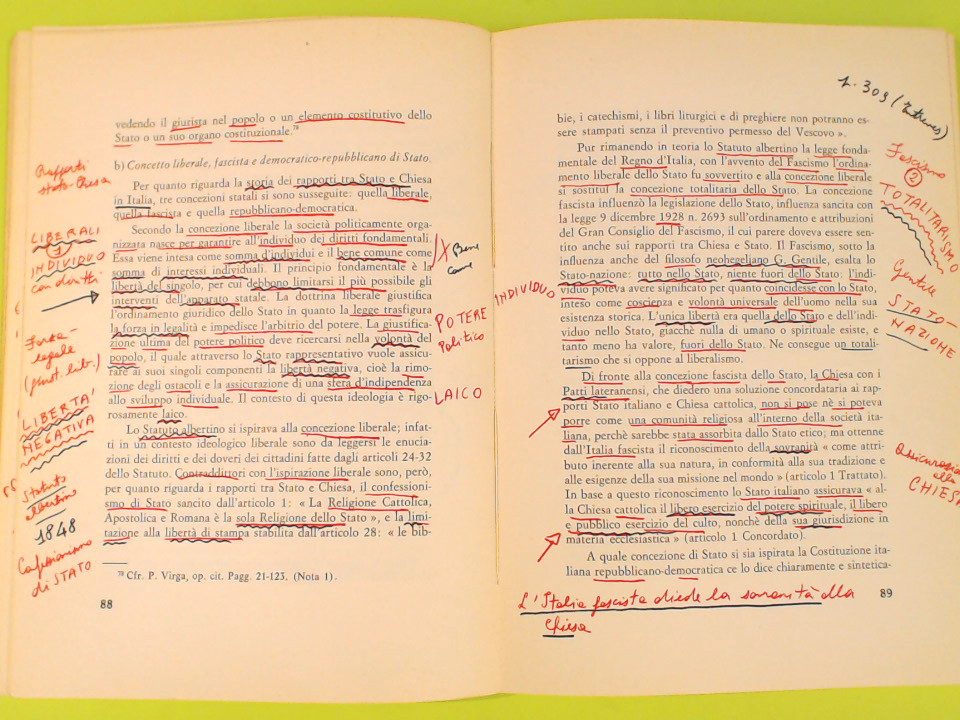 vedendo il giurista nel popolo o un elemento costitutivo dello
Stato o un suo organo costituzionale.⁷⁸
b) Concetto liberale, fascista e democratico-repubblicano di Stato.
Per quanto riguarda la storia dei rapporti tra Stato e Chiesa
in Italia, tre concezioni statali si sono susseguite: quella liberale,
quella fascista e quella repubblicano-democratica.
Secondo la concezione liberale la società politicamente orga-
nizzata nasce per garantire all'individuo dei diritti fondamentali.
Essa viene intesa come somma d'individui e il bene comune come
somma di interessi individuali. Il principio fondamentale è la
libertà del singolo, per cui debbono limitarsi il più possibile gli
interventi dell'apparato statale. La dottrina liberale giustifica
l'ordinamento giuridico dello Stato in quanto la legge trasfigura
la forza in legalità e impedisce l'arbitrio del potere. La giustifica-
zione ultima del potere politico deve ricercarsi nella volontà del
popolo, il quale attraverso lo Stato rappresentativo vuole assicu-
rare ai suoi singoli componenti la libertà negativa, cioè la rimo-
zione degli ostacoli e la assicurazione di una sfera d'indipendenza
allo sviluppo individuale. Il contesto di questa ideologia è rigo-
rosamente laico.
Lo Statuto albertino si ispirava alla concezione liberale; infat-
ti in un contesto ideologico liberale sono da leggersi le enuncia-
zioni dei diritti e dei doveri dei cittadini fatte dagli articoli 24-32
dello Statuto. Contraddittori con l'ispirazione liberale sono, però,
per quanto riguarda i rapporti tra Stato e Chiesa, il confessioni-
smo di Stato sancito dall'articolo 1: « La Religione Cattolica,
Apostolica e Romana è la sola Religione dello Stato », e la limi-
tazione alla libertà di stampa stabilita dall'articolo 28: « le bib-
⁷⁸ Cfr. P. Virga, op. cit. Pagg. 21-123. (Nota 1).
88
Rapporti
Stato-Chiesa
LIBERALI
1
INDIVIDUO
con diritti
Forza
legale
LIBERTA'
NEGATIVA
Statuto
albertino
1848
Confessionismo
di STATO
Bene
com
POTERE
Politico
LAICO
bie, i catechismi, i libri liturgici e di preghiere non potranno es-
sere stampati senza il preventivo permesso del Vescovo ».
Pur rimanendo in teoria lo Statuto albertino la legge fonda-
mentale del Regno d'Italia, con l'avvento del Fascismo l'ordina-
mento liberale dello Stato fu sovvertito e alla concezione liberale
si sostituì la concezione totalitaria dello Stato. La concezione
fascista influenzò la legislazione dello Stato, influenza sancita con
la legge 9 dicembre 1928 n. 2693 sull'ordinamento e attribuzioni
del Gran Consiglio del Fascismo, il cui parere doveva essere sen-
tito anche sui rapporti tra Chiesa e Stato. Il Fascismo, sotto la
influenza anche del filosofo neohegeliano G. Gentile, esalta lo
Stato-nazione: tutto nello Stato, niente fuori dello Stato: l'indi-
viduo poteva avere significato per quanto coincidesse con lo Stato,
inteso come coscienza e volontà universale dell'uomo nella sua
esistenza storica. L'unica libertà era quella dello Stato e dell'indi-
viduo nello Stato, giacchè nulla di umano o spirituale esiste, e
tanto meno ha valore, fuori dello Stato. Ne consegue un totali-
tarismo che si oppone al liberalismo.
Di fronte alla concezione fascista dello Stato, la Chiesa con i
Patti lateranensi, che diedero una soluzione concordataria ai rap-
porti Stato italiano e Chiesa cattolica, non si pose nè si poteva
porre come una comunità religiosa all'interno della società ita-
liana, perchè sarebbe stata assorbita dallo Stato etico; ma ottenne
dall'Italia fascista il riconoscimento della sovranità « come attri-
buto inerente alla sua natura, in conformità alla sua tradizione e
alle esigenze della sua missione nel mondo » (articolo 1 Trattato).
In base a questo riconoscimento lo Stato italiano assicurava « al-
la Chiesa cattolica il libero esercizio del potere spirituale, il libero
e pubblico esercizio del culto, nonchè della sua giurisdizione in
materia ecclesiastica » (articolo 1 Concordato).
A quale concezione di Stato si sia ispirata la Costituzione ita-
liana repubblicano-democratica ce lo dice chiaramente e sintetica-
89
309
Fascismo
2
TOTALITARISMO
Gentile
STATO-
NAZIONE
INDIVIDUO
alla
CHIESA
L'Italia fascista diede la sovranità alla
Chiesa